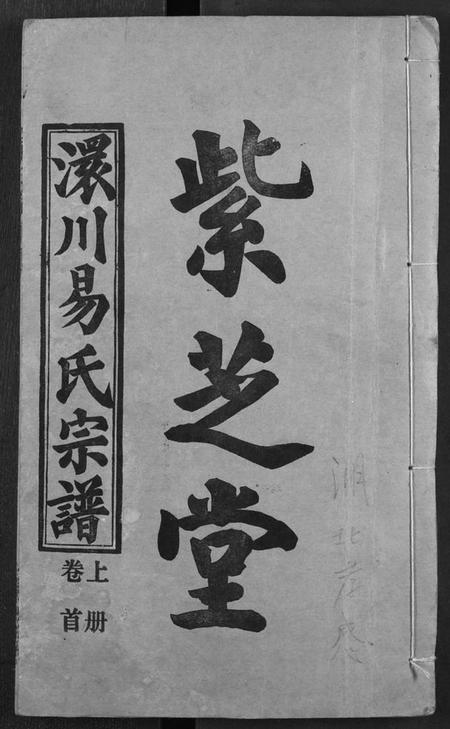 紫芝堂
澴川易氏宗譜
卷首
上册
湖北